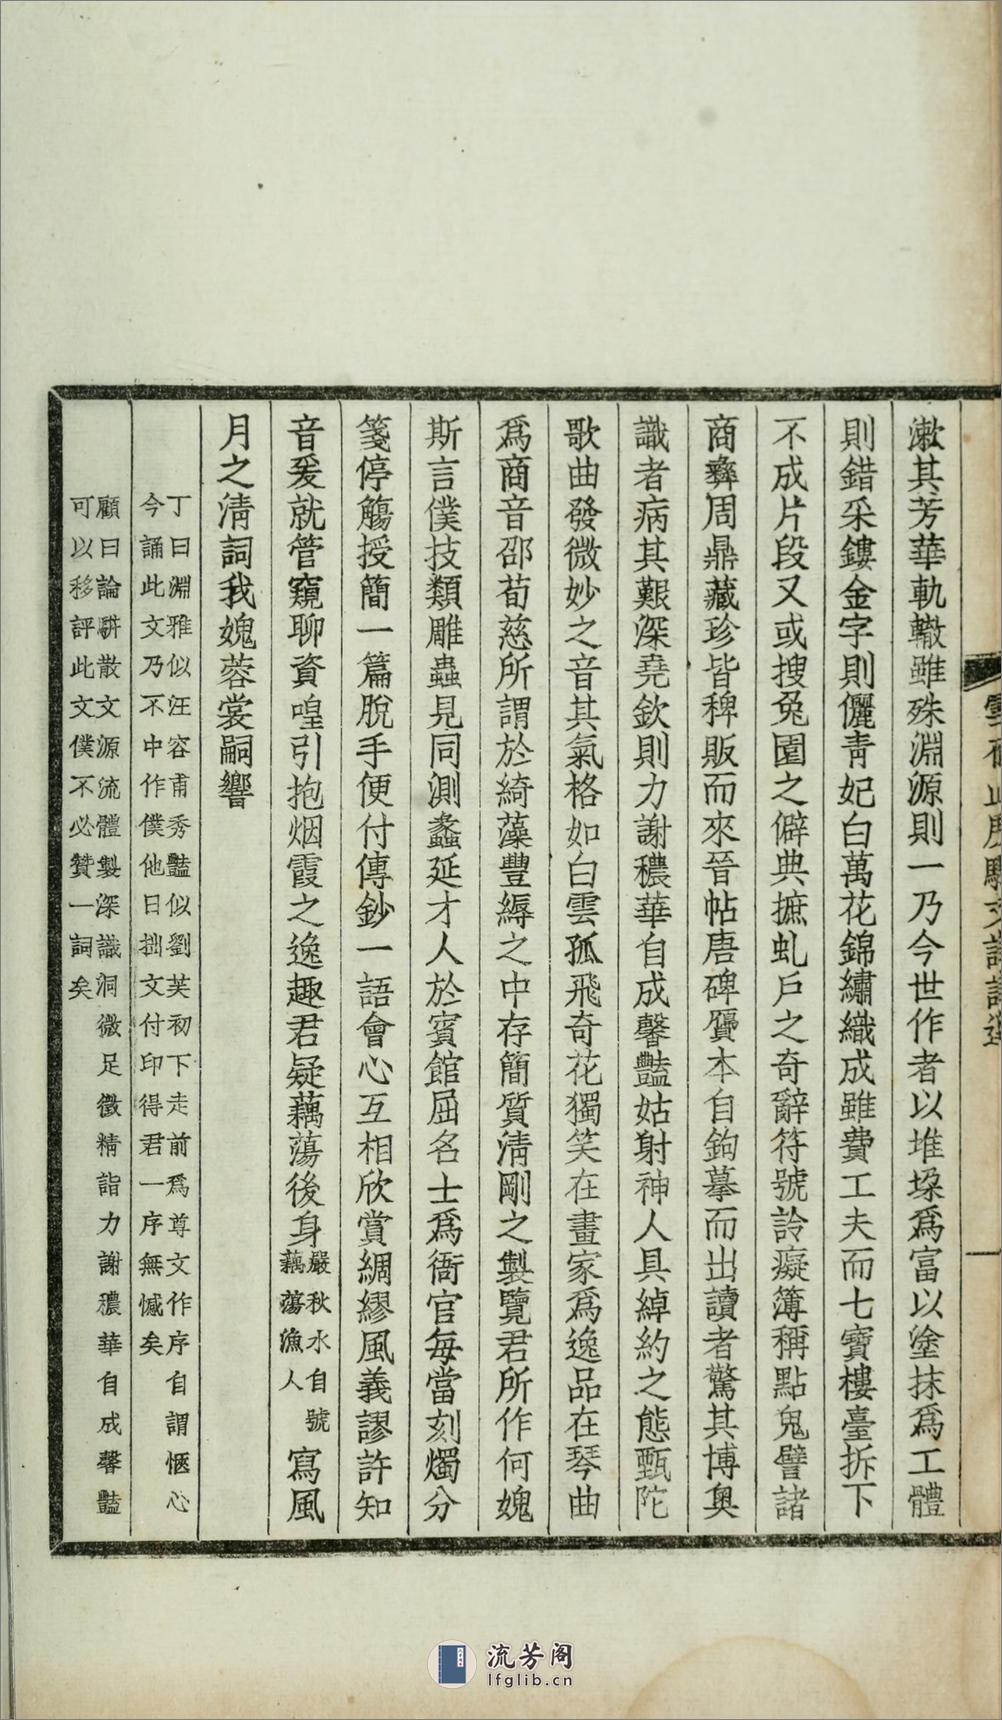 漱其芳華軌轍雖殊淵源則一乃今世作者以堆垛爲富以塗抹爲工體
則錯采鏤金字則儷青妃白萬花錦繡織成雖費工夫而七寶樓臺拆下
不成片段又或搜兔園之僻典摭虬戶之奇辭符號詅癡簿稱點鬼譬諸
商彝周鼎藏珍皆稗販而來晉帖唐碑贋本自鉤摹而出讀者驚其博奧
識者病其艱深堯欽則力謝穠華自成馨豔姑射神人具綽約之態甄陀
歌曲發微妙之音其氣格如白雲孤飛奇花獨笑在畫家爲逸品在琴曲
爲商音邵荀慈所謂於綺藻豐縟之中存簡質清剛之製覽君所作何媿
斯言僕技類雕蟲見同測蠡延才人於賓館屈名士爲衙官每當刻燭分
箋停觴授簡一篇脫手便付傳鈔一語會心互相欣賞綢繆風義謬許知
音爰就管窺聊資喤引抱烟霞之逸趣君疑藕蕩後身
嚴秋水自號
藕蕩漁人
寫風
月之淸詞我媿蓉裳嗣響
丁曰淵雅似汪容甫秀豔似劉芙初下走前爲尊文作序自謂愜心
今誦此文乃不中作僕他日拙文付印得君一序無憾矣
顧曰論駢散文源流體製深識洞微足徵精詣力謝穠華自成馨豔
可以移評此文僕不必贊一詞矣
流芳阁
lfglib.cn